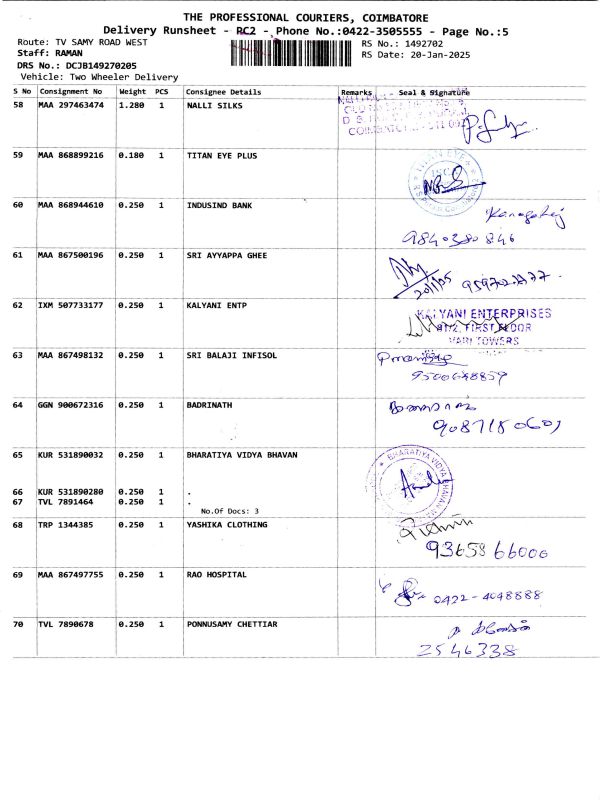 THE PROFESSIONAL COURIERS, COIMBATORE
Delivery Runsheet - RC2 - Phone No.:0422-3505555 - Page No.:5
Route: TV SAMY ROAD WEST RS No.: 1492702
Staff: RAMAN RS Date: 20-Jan-2025
DRS No.: DCJB149270205
Vehicle: Two Wheeler Delivery
S No Consignment No Weight PCS Consignee Details Remarks Seal & Signature
58 MAA 297463474 1.280 1 NALLI SILKS
59 MAA 868899216 0.180 1 TITAN EYE PLUS
60 MAA 868944610 0.250 1 INDUSIND BANK
9840380846
61 MAA 867500196 0.250 1 SRI AYYAPPA GHEE
62 IXM 507733177 0.250 1 KALYANI ENTP
KALYANI ENTERPRISES
FIRST FLOOR
HARI TOWERS
63 MAA 867498132 0.250 1 SRI BALAJI INFISOL
9500648859
64 GGN 900672316 0.250 1 BADRINATH
65 KUR 531890032 0.250 1 BHARATIYA VIDYA BHAVAN
BHARATIYA VIDYA BHAVAN
66 KUR 531890280 0.250 1 .
67 TVL 7891464 0.250 1 .
No.Of Docs: 3
68 TRP 1344385 0.250 1 YASHIKA CLOTHING
9365866006
69 MAA 867497755 0.250 1 RAO HOSPITAL
0422-4048888
70 TVL 7890678 0.250 1 PONNUSAMY CHETTIAR
2546338